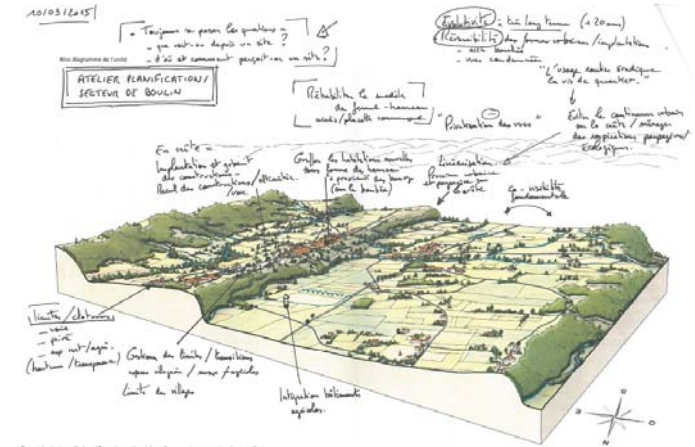 10/03/2015
- Toujours se poser les questions =
- que voit-on depuis un site ?
- d'où et comment perçoit-on un site ?
Bloc diagramme de l'unité
ATELIER PLANIFICATION/
SECTEUR DE BOULIN
Evolutivité à très long terme (+20 ans)
Réversibilité des formes urbaines/implantations
- vues condamnées
"L'usage routier éradique
la vie de quartier."
Réhabiliter le modèle
de ferme-hameau
placette commune
"Privatisation des vues"
Eviter le continuum urbain
sur la crête / ménager
des respirations paysagères/
écologiques.
En crête =
Implantation et gabarit
des constructions -
Recul des constructions /
voie.
Greffer les habitations nouvelles
sous forme de hameau
à proximité des bourgs
Linéarisation.
Pression urbaine
et paysagère sur
la crête
Co-visibilité
fondamentale
limites/clotures
- voie
- privé
- esp nat/agri.
(hauteur/transparence)
Gestion des limites / transitions
espaces villageois / espaces agricoles
Limite des villages
Intégration bâtiments
agricoles.
S
E
O
N